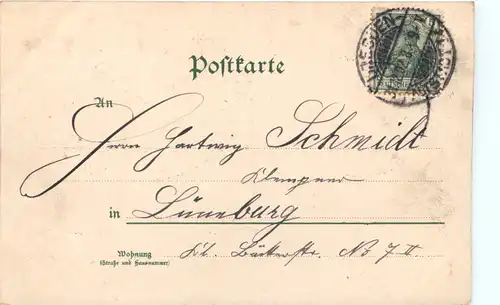 Postkarte
An
Herrn Hartwig Schmidt
Klempner
in Lüneburg
Wohnung
(Straße und Hausnummer)
Kl. Bäckerstr. No 7 II